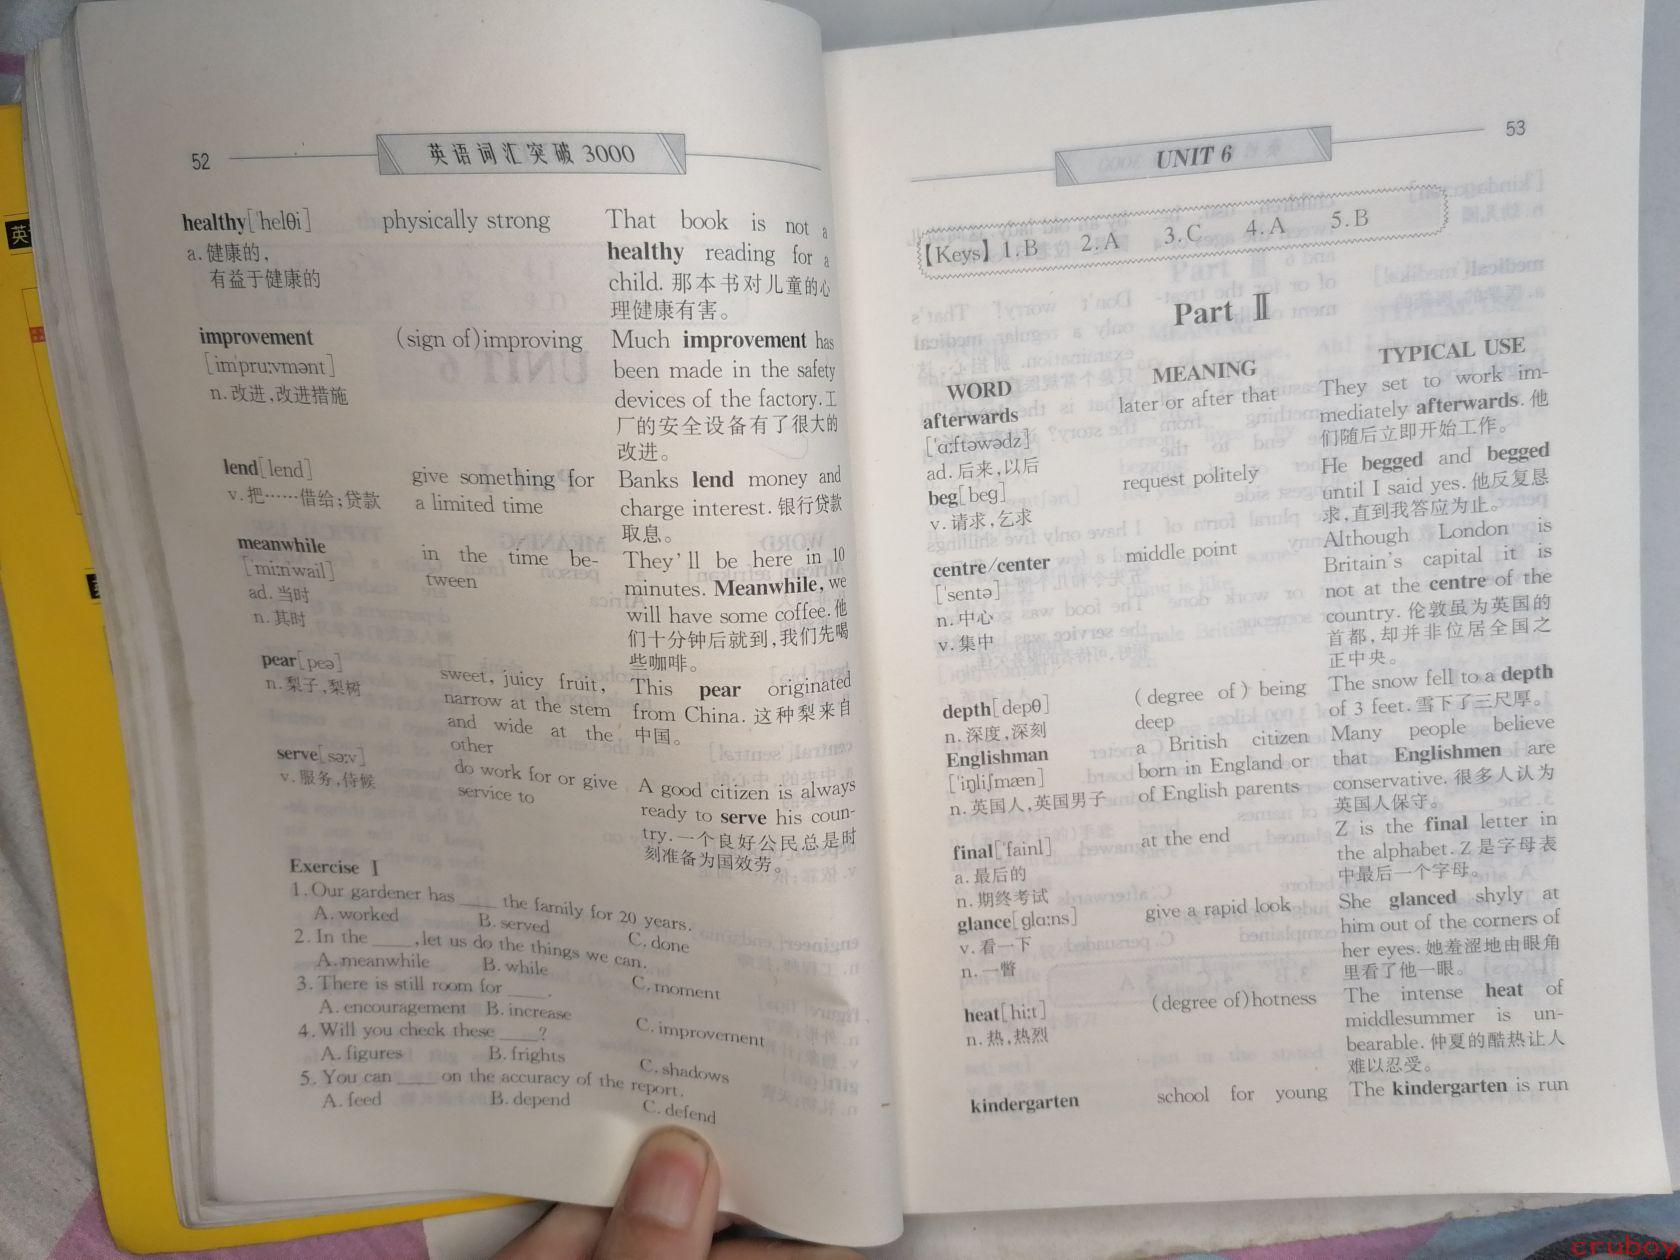 52
英语词汇突破 3000
healthy[ˈhelθi]
a.健康的,
有益于健康的
physically strong
That book is not a
healthy reading for a
child. 那本书对儿童的心
理健康有害。
improvement
[imˈpruːvmənt]
n.改进,改进措施
(sign of)improving
Much improvement has
been made in the safety
devices of the factory.工
厂的安全设备有了很大的
改进。
lend[lend]
v.把……借给;贷款
give something for
a limited time
Banks lend money and
charge interest. 银行贷款
取息。
meanwhile
[ˈmiːnˈwail]
ad.当时
n.其时
in the time be-
tween
They'll be here in 10
minutes. Meanwhile, we
will have some coffee.他
们十分钟后就到,我们先喝
些咖啡。
pear[peə]
n.梨子,梨树
sweet, juicy fruit,
narrow at the stem
and wide at the
other
This pear originated
from China. 这种梨来自
中国。
serve[səːv]
v.服务,侍候
do work for or give
service to
A good citizen is always
ready to serve his coun-
try.一个良好公民总是时
刻准备为国效劳。
Exercise Ⅰ
1.Our gardener has ____ the family for 20 years.
A. worked B. served C. done
2. In the ____,let us do the things we can.
A. meanwhile B. while C. moment
3. There is still room for ____.
A. encouragement B. increase C. improvement
4. Will you check these ____?
A. figures B. frights C. shadows
5. You can ____ on the accuracy of the report.
A. feed B. depend C. defend
UNIT 6
53
【Keys】1.B 2.A 3.C 4.A 5.B
Part Ⅱ
WORD MEANING TYPICAL USE
afterwards
[ˈɑːftəwədz]
ad.后来,以后
later or after that
They set to work im-
mediately afterwards. 他
们随后立即开始工作。
beg[beg]
v.请求,乞求
request politely
He begged and begged
until I said yes. 他反复恳
求,直到我答应为止。
centre/center
[ˈsentə]
n.中心
v.集中
middle point
Although London is
Britain's capital it is
not at the centre of the
country. 伦敦虽为英国的
首都,却并非位居全国之
正中央。
depth[depθ]
n.深度,深刻
(degree of) being
deep
The snow fell to a depth
of 3 feet. 雪下了三尺厚。
Englishman
[ˈiŋliʃmæn]
n.英国人,英国男子
a British citizen
born in England or
of English parents
Many people believe
that Englishmen are
conservative. 很多人认为
英国人保守。
final[ˈfainl]
a.最后的
n.期终考试
at the end
Z is the final letter in
the alphabet. Z 是字母表
中最后一个字母。
glance[glɑːns]
v.看一下
n.一瞥
give a rapid look
She glanced shyly at
him out of the corners of
her eyes. 她羞涩地由眼角
里看了他一眼。
heat[hiːt]
n.热,热烈
(degree of)hotness
The intense heat of
middlesummer is un-
bearable. 仲夏的酷热让人
难以忍受。
kindergarten
school for young
The kindergarten is run
cruboy